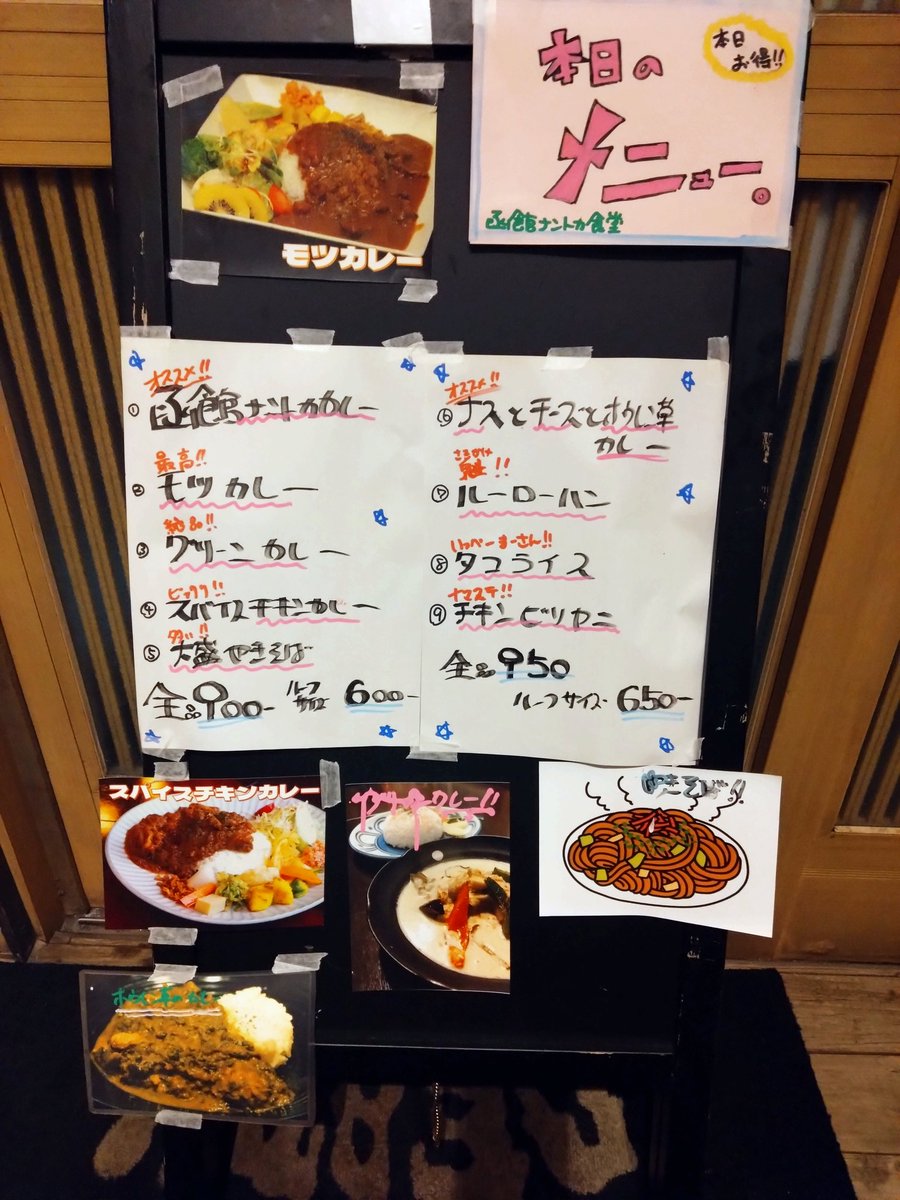 本日の
メニュー。
本日
お得!!
函館ナントカ食堂
モツカレー
オススメ!!
① 函館ナントカカレー
最高!!
② モツカレー
絶品!!
③ グリーンカレー
ビックリ!!
④ スパイスチキンカレー
⑤ 大盛やきそば
全品900-
ハーフサイズ 600-
オススメ!!
⑥ ナスとチーズとほうれい草
カレー
さきがけ
魁!!
⑦ ルーローハン
いっぺーまーさん!!
⑧ タコライス
ナマステ!!
⑨ チキンビリヤニ
全品950
ハーフサイズ 650-
スパイスチキンカレー
グリーンカレー!!
やきそば!!